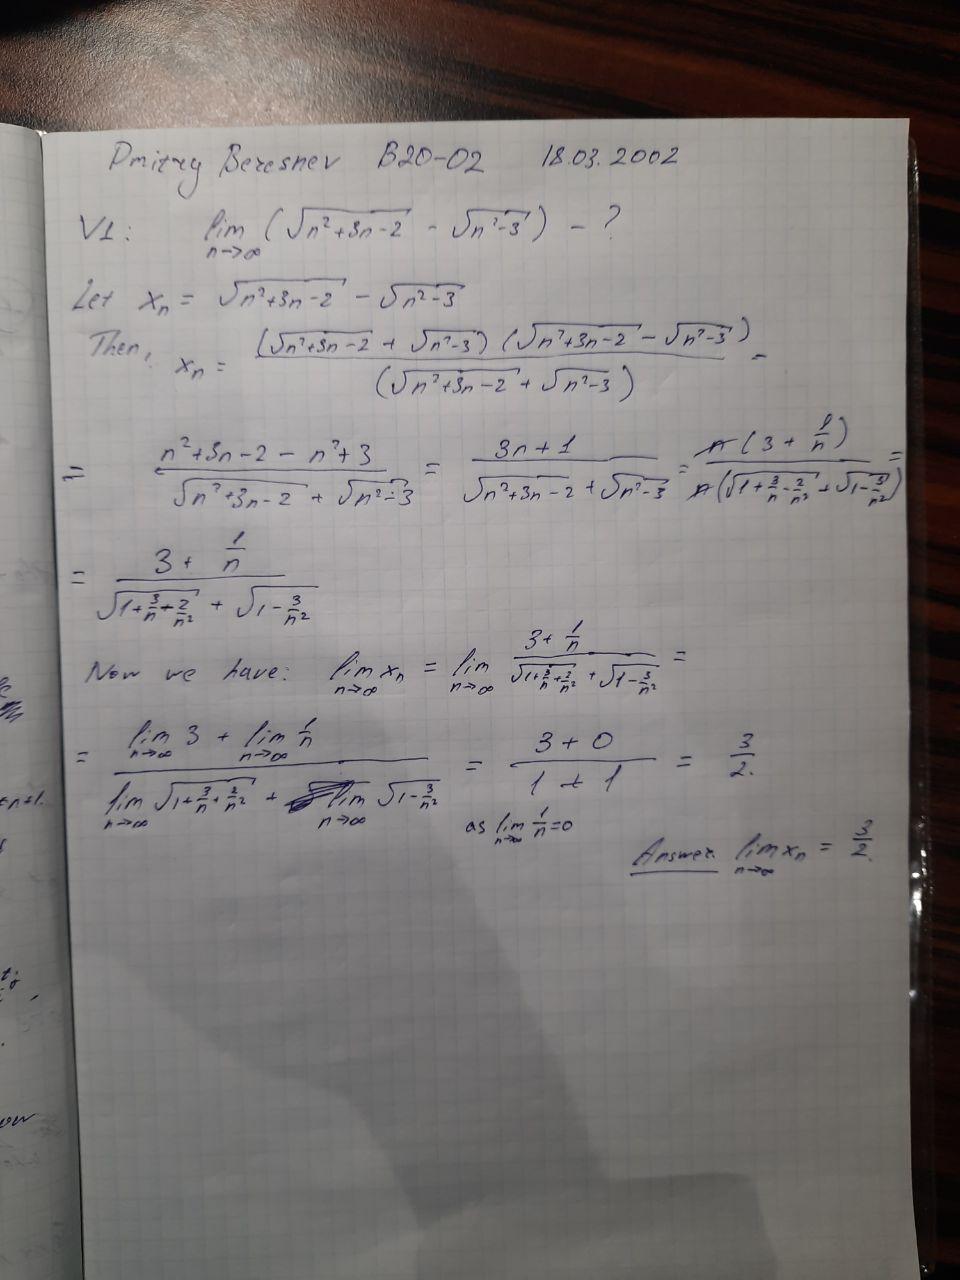 Dmitry Beresnev B20-02 18.03.2002
V1: lim n→∞ (√(n²+3n-2) - √(n²-3)) - ?
Let xₙ = √(n²+3n-2) - √(n²-3)
Then, xₙ = (√(n²+3n-2) + √(n²-3)) (√(n²+3n-2) - √(n²-3)) / (√(n²+3n-2) + √(n²-3)) =
= (n²+3n-2 - n²+3) / (√(n²+3n-2) + √(n²-3)) = (3n+1) / (√(n²+3n-2) + √(n²-3)) = n(3 + 1/n) / n(√(1+3/n-2/n²) + √(1-3/n²)) =
= (3 + 1/n) / (√(1+3/n+2/n²) + √(1-3/n²))
Now we have: lim n→∞ xₙ = lim n→∞ (3+1/n) / (√(1+3/n+2/n²) + √(1-3/n²)) =
= (lim n→∞ 3 + lim n→∞ 1/n) / (lim n→∞ √(1+3/n+2/n²) + lim n→∞ √(1-3/n²)) = (3+0) / (1+1) = 3/2.
as lim n→∞ 1/n = 0
Answer. lim n→∞ xₙ = 3/2.